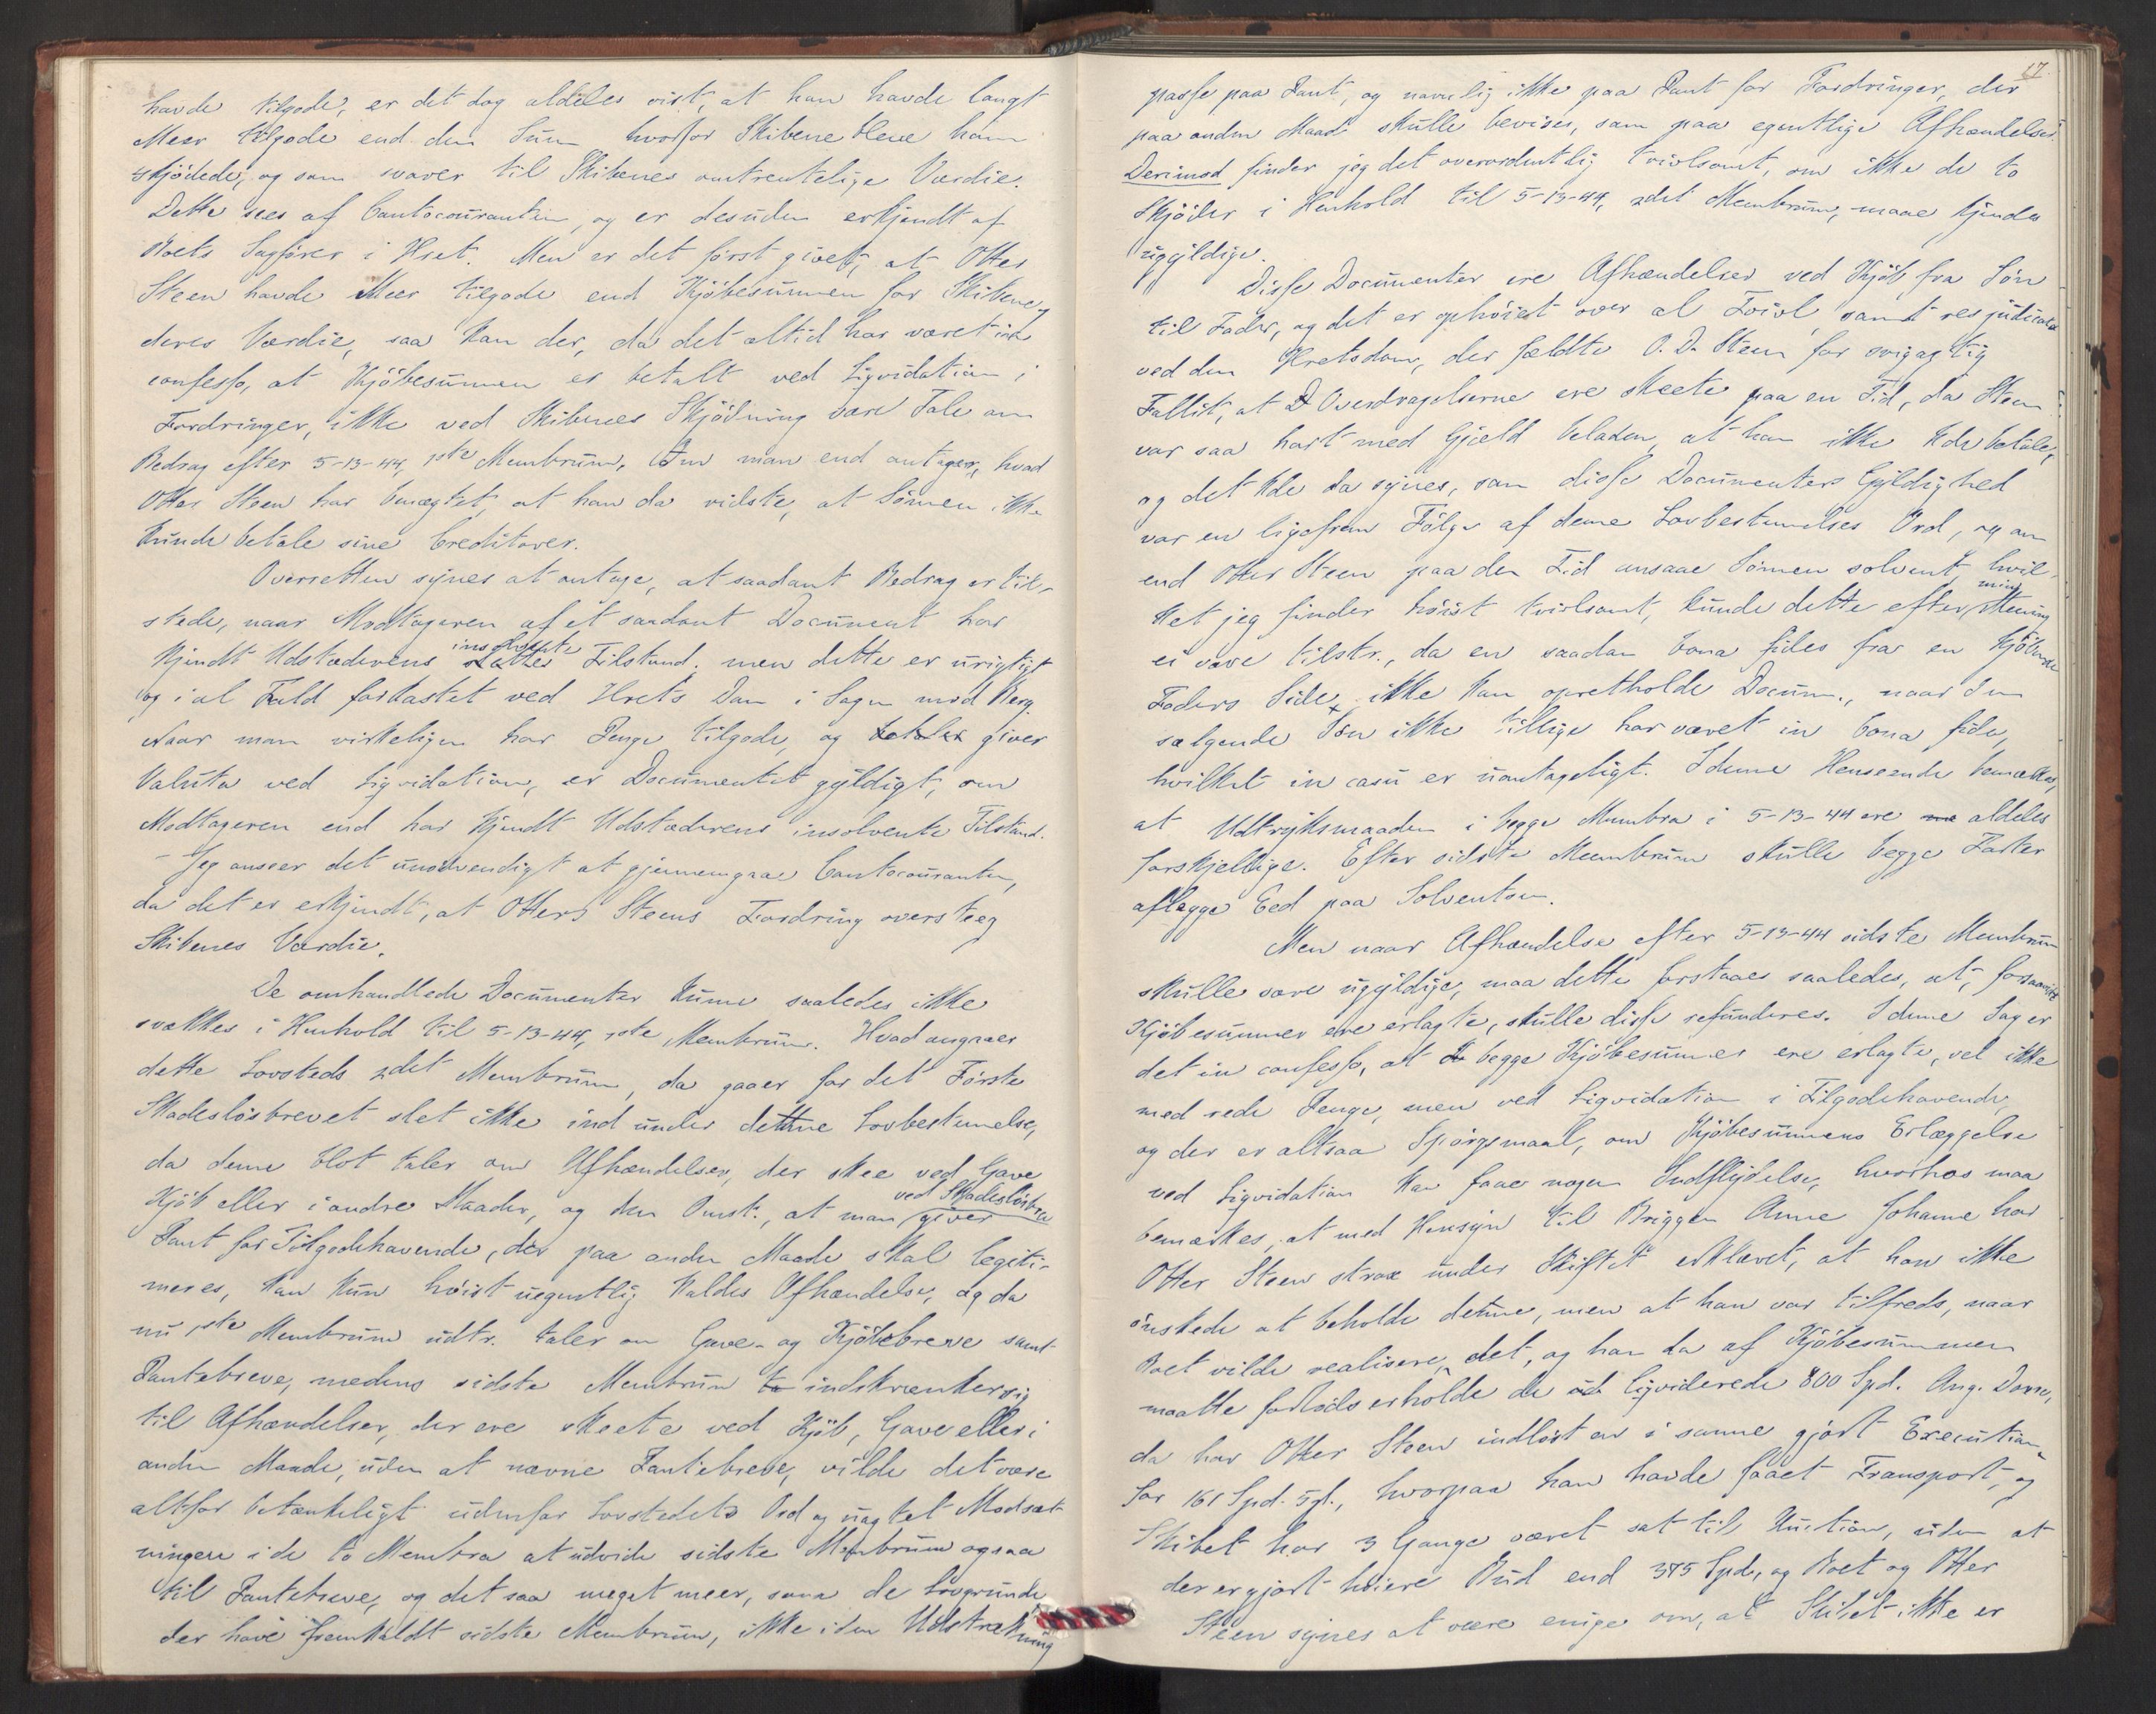 havde tilgode, er det dog aldeles vist, at han havde langt
Meer tilgode end den Sum hvorfor Skibene bleve ham
skjødede, og som svarer til Skibenes omtrentelige Værdie.
Dette sees af Contocouranten, og er desuden erkjendt af
Boets Sagfører i Hret. Men er det først givet, at Otter
Steen havde Meer tilgode end Kjöbesummen for Skibene og
deres Værdie, saa kan der, da det altid har været in
confesso, at Kjöbesummen er betalt ved Liqvidation i
Fordringer, ikke ved Skibenes Skjödning være Tale om
Bedrag efter 5-13-44, 1ste Membrum, Om man end antager, hvad
Otter Steen har benægtet, at han da vidste, at Sönnen ikke
kunde betale sine Creditorer.
Overretten synes at antage, at saadant Bedrag er til-
stede, naar Modtageren af et saadant Document har
kjendt Udstederens insolvente Tilstand; men dette er urigtigt
og i al Fald forkastet ved Hrets Dom i Sagen mod Berg.
Naar man virkeligen har Penge tilgode, og giver
Valuta ved Liqvidation, er Documentet gyldigt, om
Modtageren end har kjendt Udstederens insolvente Tilstand.
- Jeg anseer det unödvendigt at gjennemgaae Contocouranten,
da det er erkjendt, at Otters Steens Fordring oversteeg
Skibenes Værdie.
De omhandlede Documenter kunne saaledes ikke
svækkes i Henhold til 5-13-44, 1ste Membrum. Hvad angaaer
dette Lovsteds 2det Membrum, da gaaer for det Förste
Skadeslösbrevet slet ikke ind under denne Lovbestemelse,
da denne blot taler om Afhændelser, der skee ved Gave
Kjöb eller i andre Maader, og den Omst., at man ved Skadeslösbrev giver
Pant for Tilgodehavende, der paa anden Maade skal legiti-
meres, kan kun höist uegentlig kaldes Afhændelse, og da
nu 1ste Membrum udtr. taler om Gave- og Kjöbebreve samt
Pantebreve, medens sidste Membrum indskrænker sig
til Afhændelser, der ere skeete ved Kjöb, Gave eller i
anden Maade, uden at nævne Pantebreve, vilde det være
altfor betænkeligt udenfor Lovstedets Ord og uagtet Modsæt-
ningen i de to Membra at udvide sidste Membrum ogsaa
til Pantebreve, og det saa meget meer, som de Lovgrunde
der have fremkaldt sidste Membrum, ikke i den Udstrækning
17.
passe paa Pant, og navnlig ikke paa Pant for Fordringer, der
paa anden Maade skulle bevises, som paa egentlige Afhændelser.
Derimod finder jeg det overordentlig tvivlsomt, om ikke de to
Skjöder i Henhold til 5-13-44, 2det Membrum, maae kjendes
ugyldige.
Disse Documenter ere Afhændelser ved Kjöb fra Sön
til Fader, og det er ophöiet over al Tvivl, samt res judicata
ved den Hretsdom, der fældte O. D. Steen for svigagtig
Fallit, at Overdragelserne ere skeete paa en Tid, da Steen
var saa hart med Gjæld beladen, at han ikke kde betale,
og det kde da synes, som disse Documenters Gyldighed
var en ligefrem Fölge af denne Lovbestemelses Ord, og om
end Otter Steen paa den Tid ansaae Sönnen solvent, hvil-
ket jeg finder höist tvivlsomt, kunde dette efter min Mening
ei være tilstr., da en saadan bona fides fra en kjöbende
Faders Side, ikke kan opretholde Docum., naar den
sælgende Sön ikke tillige har været in bona fide,
hvilket in casu er uantageligt. I denne Henseende bemærkes,
at Udtryksmaaden i begge Membra i 5-13-44 ere aldeles
forskjellige. Efter sidste Membrum skulle begge Parter
aflægge Eed paa Solventsen.
Men naar Afhændelse efter 5-13-44 sidste Membrum
skulle være ugyldige, maa dette forstaaes saaledes, at, forsaavidt
Kjöbesummer ere erlagte, skulle disse refunderes. I denne Sag er
det in confesso, at begge Kjöbesummer ere erlagte, vel ikke
med rede Penge, men ved Liqvidation i Tilgodehavende,
og der er altsaa Spörgsmaal, om Kjöbesummens Erlæggelse
ved Liqvidation kan faae nogen Indflydelse, hvorhos maa
bemærkes, at med Hensyn til Briggen Anne Johanne har
Otter Steen strax under Skiftet erklæret, at han ikke
önskede at beholde denne, men at han var tilfreds, naar
Boet vilde realisere det, og han da af Kjöbesummen
maatte forlods erholde de liqviderede 800 Spd. Ang. Dorre,
da har Otter Steen indlöst en i samme gjort Execution
for 161 Spd. 5 ., hvorpaa han havde faaet Transport, og
Skibet har 3 Gange været sat til Auction, uden at
der er gjort höiere Bud end 375 Spd., og Boet og Otter
Steen synes at være enige om, at Skibet ikke er